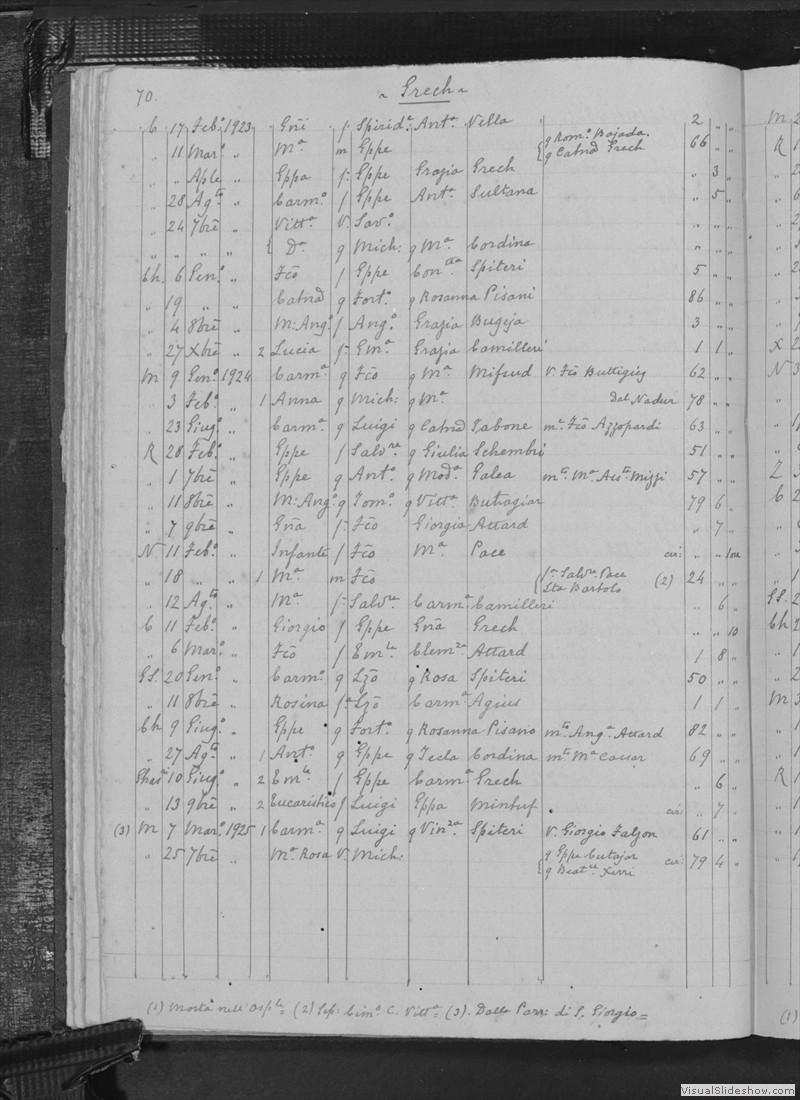 70.
~ Grech ~
C 17 Feb.º 1923 Gni f Spirid.ª Ant.ª Vella 2 " "
" 11 Mar.º " M.ª m Gppe { q Rom.º Bajada. q Catnd Grech 66 " "
" " Aple " Gppa f. Gppe Grazia Grech " 3 "
" 28 Ag.to " Carm.º f Gppe Ant.ª Sultana " 5 "
" 24 7bre " Vitt.ª V. Sav.º
" " " " { D.ª q Mich: q M.ª Cordina " " "
Ch. 6 Gen.º " Fco f Gppe Con.tta Spiteri 5 "
" 19 " " Catnd q Fort.º q Rosanna Pisani 86 " "
" 4 8bre " M: Ang.º f Ang.º Grazia Bugeja 3 " "
" 27 Xbre " 2 Lucia f. Em.ª Grazia Camilleri 1 1 "
M 9 Gen.º 1924 Carm.ª q Fco q M.ª Mifsud V. Fco Buttigieg 62 " "
" 3 Feb.º " 1 Anna q Mich: q M.ª dal Nadur 78 " "
" 23 Giug.º " Carm.ª q Luigi q Catnd Tabone m.ª Fco Azzopardi 63 " "
R 28 Feb.º " Gppe f Salv.re q Giulia Schembri 51 " "
" 1 7bre " Gppe q Ant.º q Mod.ª Galea m.to M.ª Mizzi 57 " "
" 11 8bre " M: Ang.º q Tom.º q Vitt.ª Buttigieg 79 6 "
" 7 9bre " Gna f. Fco Giorgia Attard " 7 "
N 11 Feb.º " Infante f Fco M.ª Pace cir: " " 1
" 18 " " 1 M.ª m Fco { f.ª Salv.re Pace Lta Bartolo (2) 24 " "
" 12 Ag.to " M.ª f. Salv.re Carm.ª Camilleri " 6 "
C 11 Feb.º " Giorgio f Gppe Gna Grech " " 10
" 6 Mar.º " Fco f Em.le Clem.za Attard 1 8 "
GS. 20 Gen.º " Carm.º q Lzo q Rosa Spiteri 50 " "
" 11 8bre " Rosina f.ª Lzo Carm.ª Agius 1 1 "
Ch 9 Giug.º " Gppe q Fort.º q Rosanna Pisano m.to Ang.ª Attard 82 " "
" 27 Ag.to " 1 Ant.º q Gppe q Tecla Cordina m.to M.ª Cauar 69 " "
10 Giug.º " 2 Em.le f Gppe Carm.ª Grech " 6 "
" 13 9bre " 2 Eucaristico f Luigi Gppa Mintuf cir: " 7 "
(3) M 7 Mar.º 1925 1 Carm.ª q Luigi q Vin.za Spiteri V. Giorgio Falzon 61 " "
" 25 7bre " M.ª Rosa V. Mich: { q Gppe Cutajar q Beat.ce Xerri cir: 79 4 "
(1) Morta nell'Osp.le = (2) Sep: Cim.º C. Vitt.ª = (3). Dalla Parr: di S. Giorgio =
VisualSlideshow.com